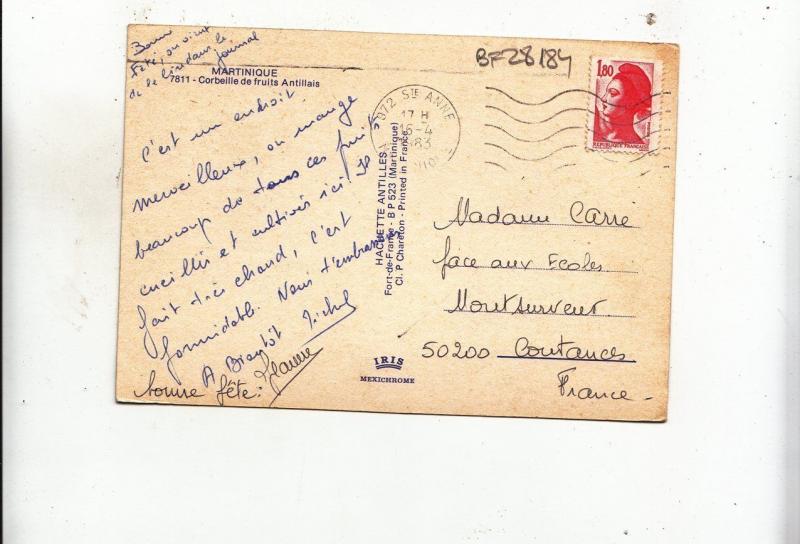 Bonne
Fête, on vient
de le lire dans le
journal
MARTINIQUE
7811 - Corbeille de fruits Antillais
C'est un endroit
merveilleux, on mange
beaucoup de tous ces fruits
cueillis et cultivés ici. Il
fait très chaud, c'est
formidable. Nous t'embrassons
A Bientôt Michel
bonne fête.
HACHETTE ANTILLES
Fort-de-France - B P 523 (Martinique)
Cl. P Chareton - Printed in France
IRIS
MEXICHROME
BF28184
972 STE ANNE
17 H
16-4
1983
1,80
REPUBLIQUE FRANÇAISE
Madame Carré
face aux Ecoles
Montsurvent
50200 Coutances
France